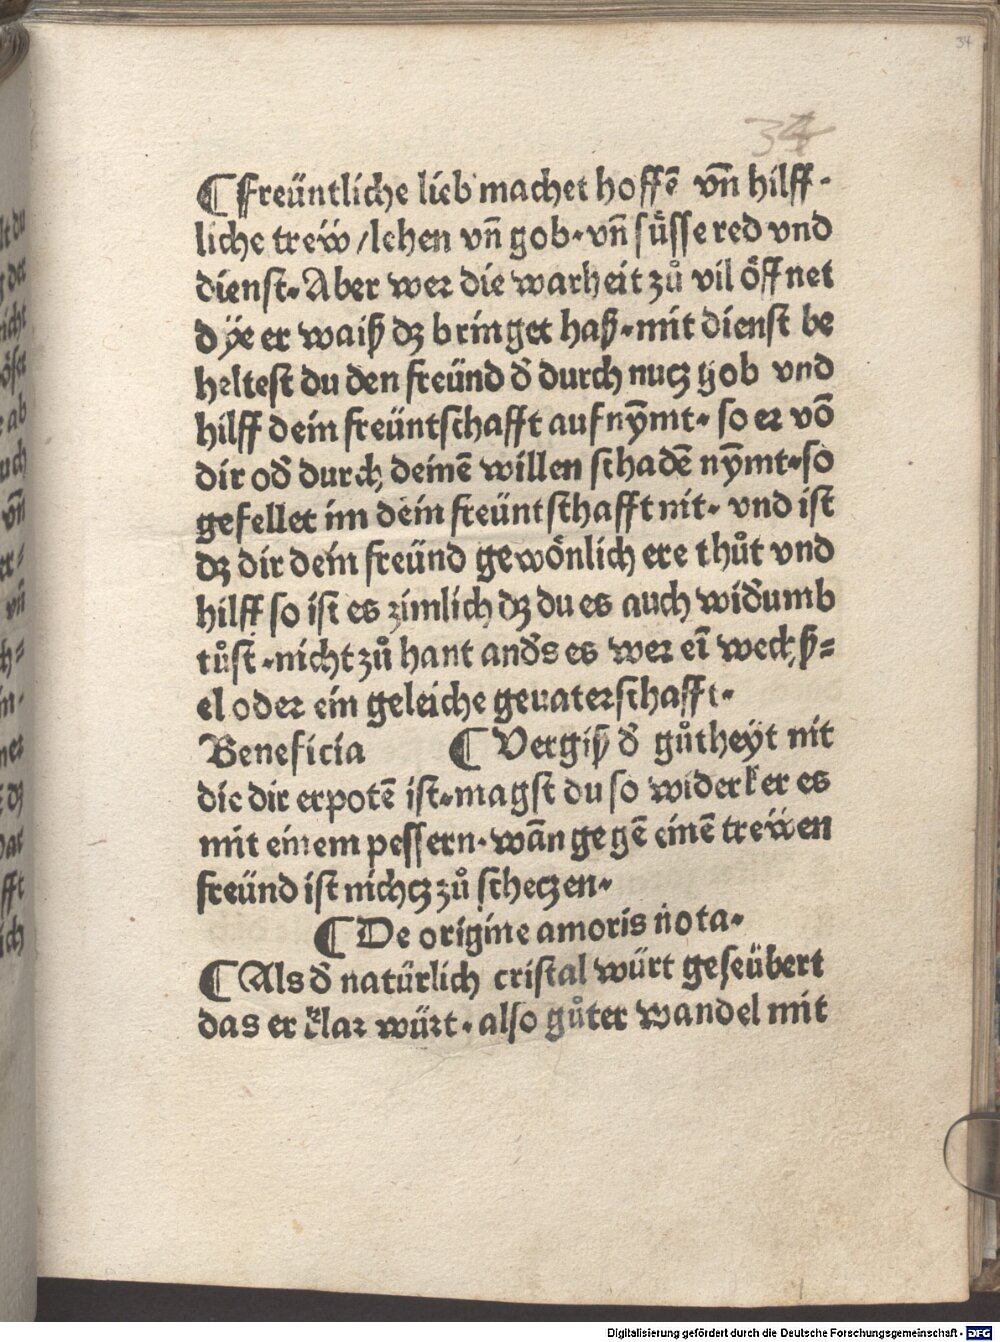 34
34
¶ Freüntliche lieb machet hoffē vn̄ hilff⸗
liche trew̎ / lehen vn̄ gob · vn̄ sůsse red vnd
dienst · Aber wer die warheit zů vil öffnet
dÿe er waiß dz bringet haß · mit dienst be
heltest du den freünd d̄ durch nucz gob vnd
hilff dein freüntschafft aufnȳmt · so er vō
dir od̄ durch deinē willen schadē nȳmt · so
gefellet im dein freüntschafft nit · vnd ist
dz dir dein freünd gewönlich ere thůt vnd
hilff so ist es zimlich dz du es auch wid̄umb
tůst · nicht zů hant and̄s es wer eī wechß⸗
el oder ein geleiche geuaterschafft ·
Beneficia ¶ Vergiß d̄ gůtheyt nit
die dir erpotē ist · magst du so widerker es
mit einem pessern · wān gegē einē trew̎en
freünd ist nichcz zů scheczen ·
¶ De origine amoris nota ·
¶ Als d̄ natürlich cristal würt geseübert
das er klar würt · also gůter wandel mit
Digitalisierung gefördert durch die Deutsche Forschungsgemeinschaft - DFG